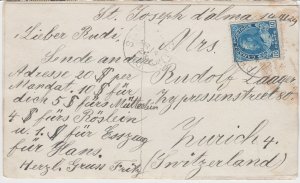 St. Joseph d'alma
Lieber Rudi!
Sende an deine
Adresse 20 $ per
Mandat. 10 $ für
dich 5 $ fürs Mütterlein
4 $ fürs Röslein
u. 1 $ für
für Hans.
Herzl. Gruss Fritz
Mrs
Rudolf
Zypressenstrasse
Zurich 4.
(Switzerland)